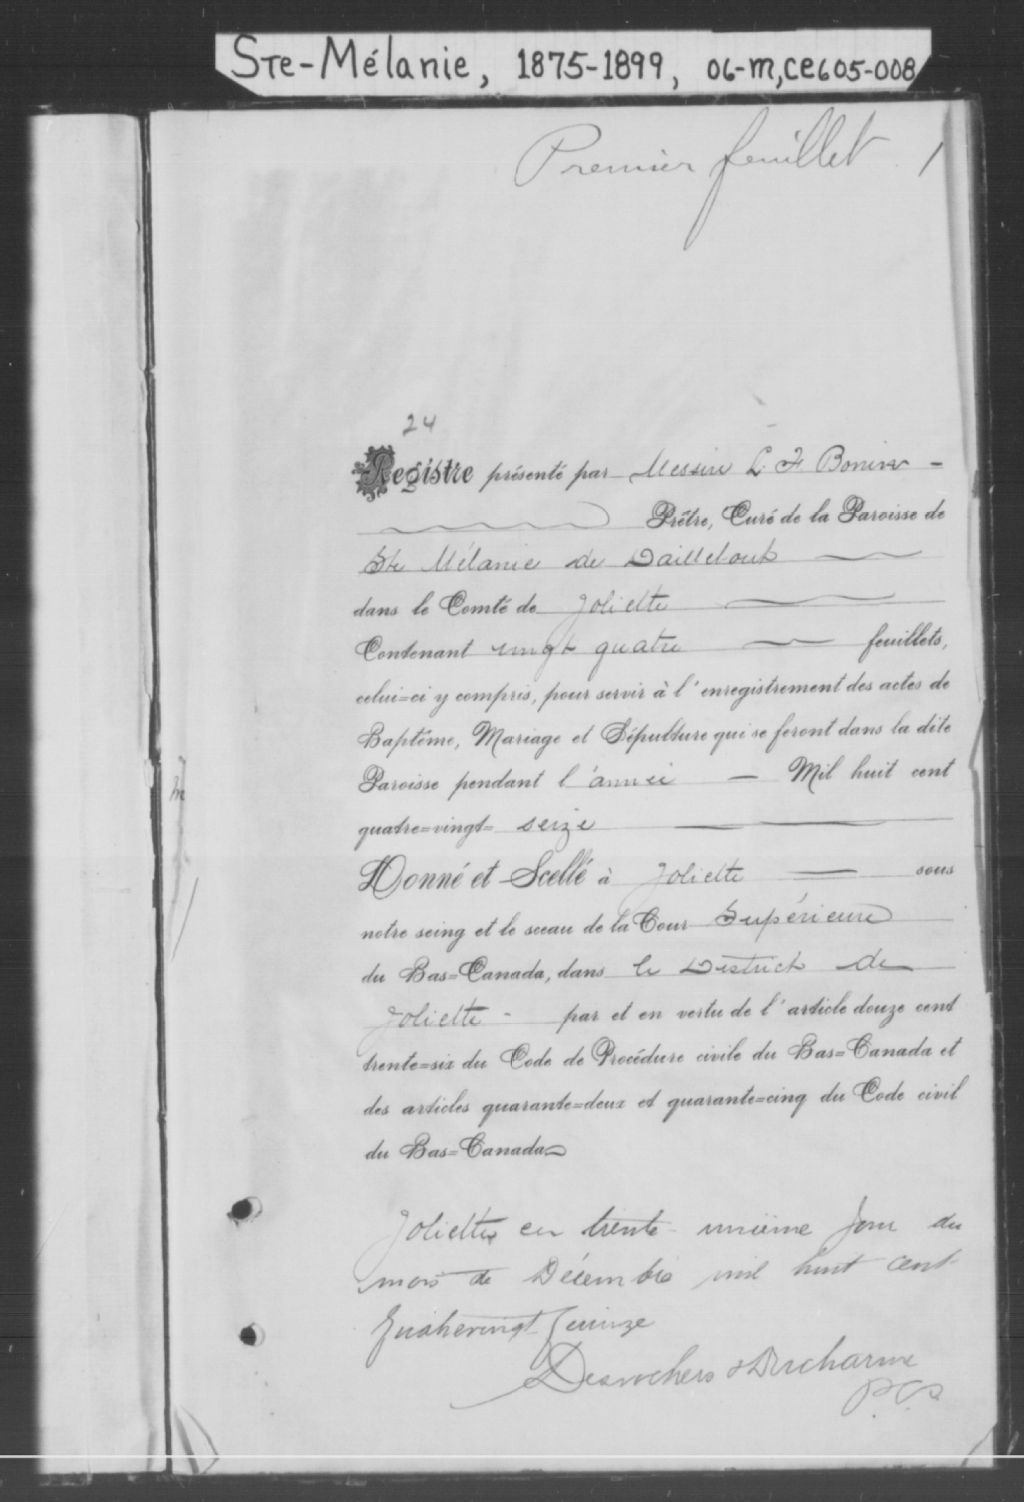 Ste-Mélanie, 1875-1899, 06-M,CE605-008
Premier feuillet 1
24
Registre présenté par Messire L. F. Bonin
Prêtre, Curé de la Paroisse de
Ste Mélanie de Daillebout
dans le Comté de Joliette
Contenant vingt quatre feuillets,
celui=ci y compris, pour servir à l'enregistrement des actes de
Baptême, Mariage et Sépulture qui se feront dans la dite
Paroisse pendant l'année Mil huit cent
quatre=vingt= seize
Donné et Scellé à Joliette sous
notre seing et le sceau de la Cour Supérieure
du Bas=Canada, dans le District de
Joliette par et en vertu de l'article douze cent
trente=six du Code de Procédure civile du Bas=Canada et
des articles quarante=deux et quarante=cinq du Code civil
du Bas=Canada
Joliette ce trente unième jour du
mois de Décembre mil huit cent
quatrevingt quinze
Desrochers & Ducharme
P.C.S.